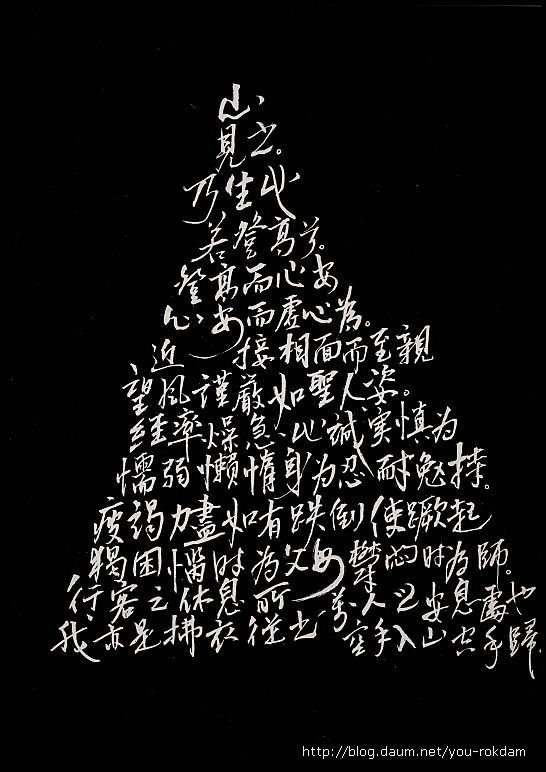 山
見之。
乃生心
若登高兮。
登高而心安
心安而虛心為。
近接相面而至親
望風謹嚴如聖人姿。
輕率燥急心誠実慎為
懦弱懶惰身為忍耐勉持。
疲竭力盡如有跌倒使蹶起
獨困惱时為父母鬱悶时為師。
行客之休息所萬人之安息處也
我亦是拂衣從之空手入山空手歸
http://blog.daum.net/you-rokdam